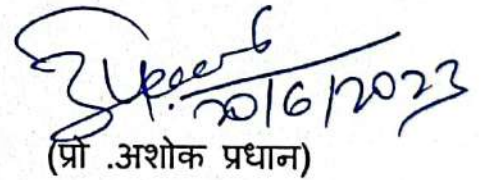 20/6/2023
(प्रो .अशोक प्रधान)